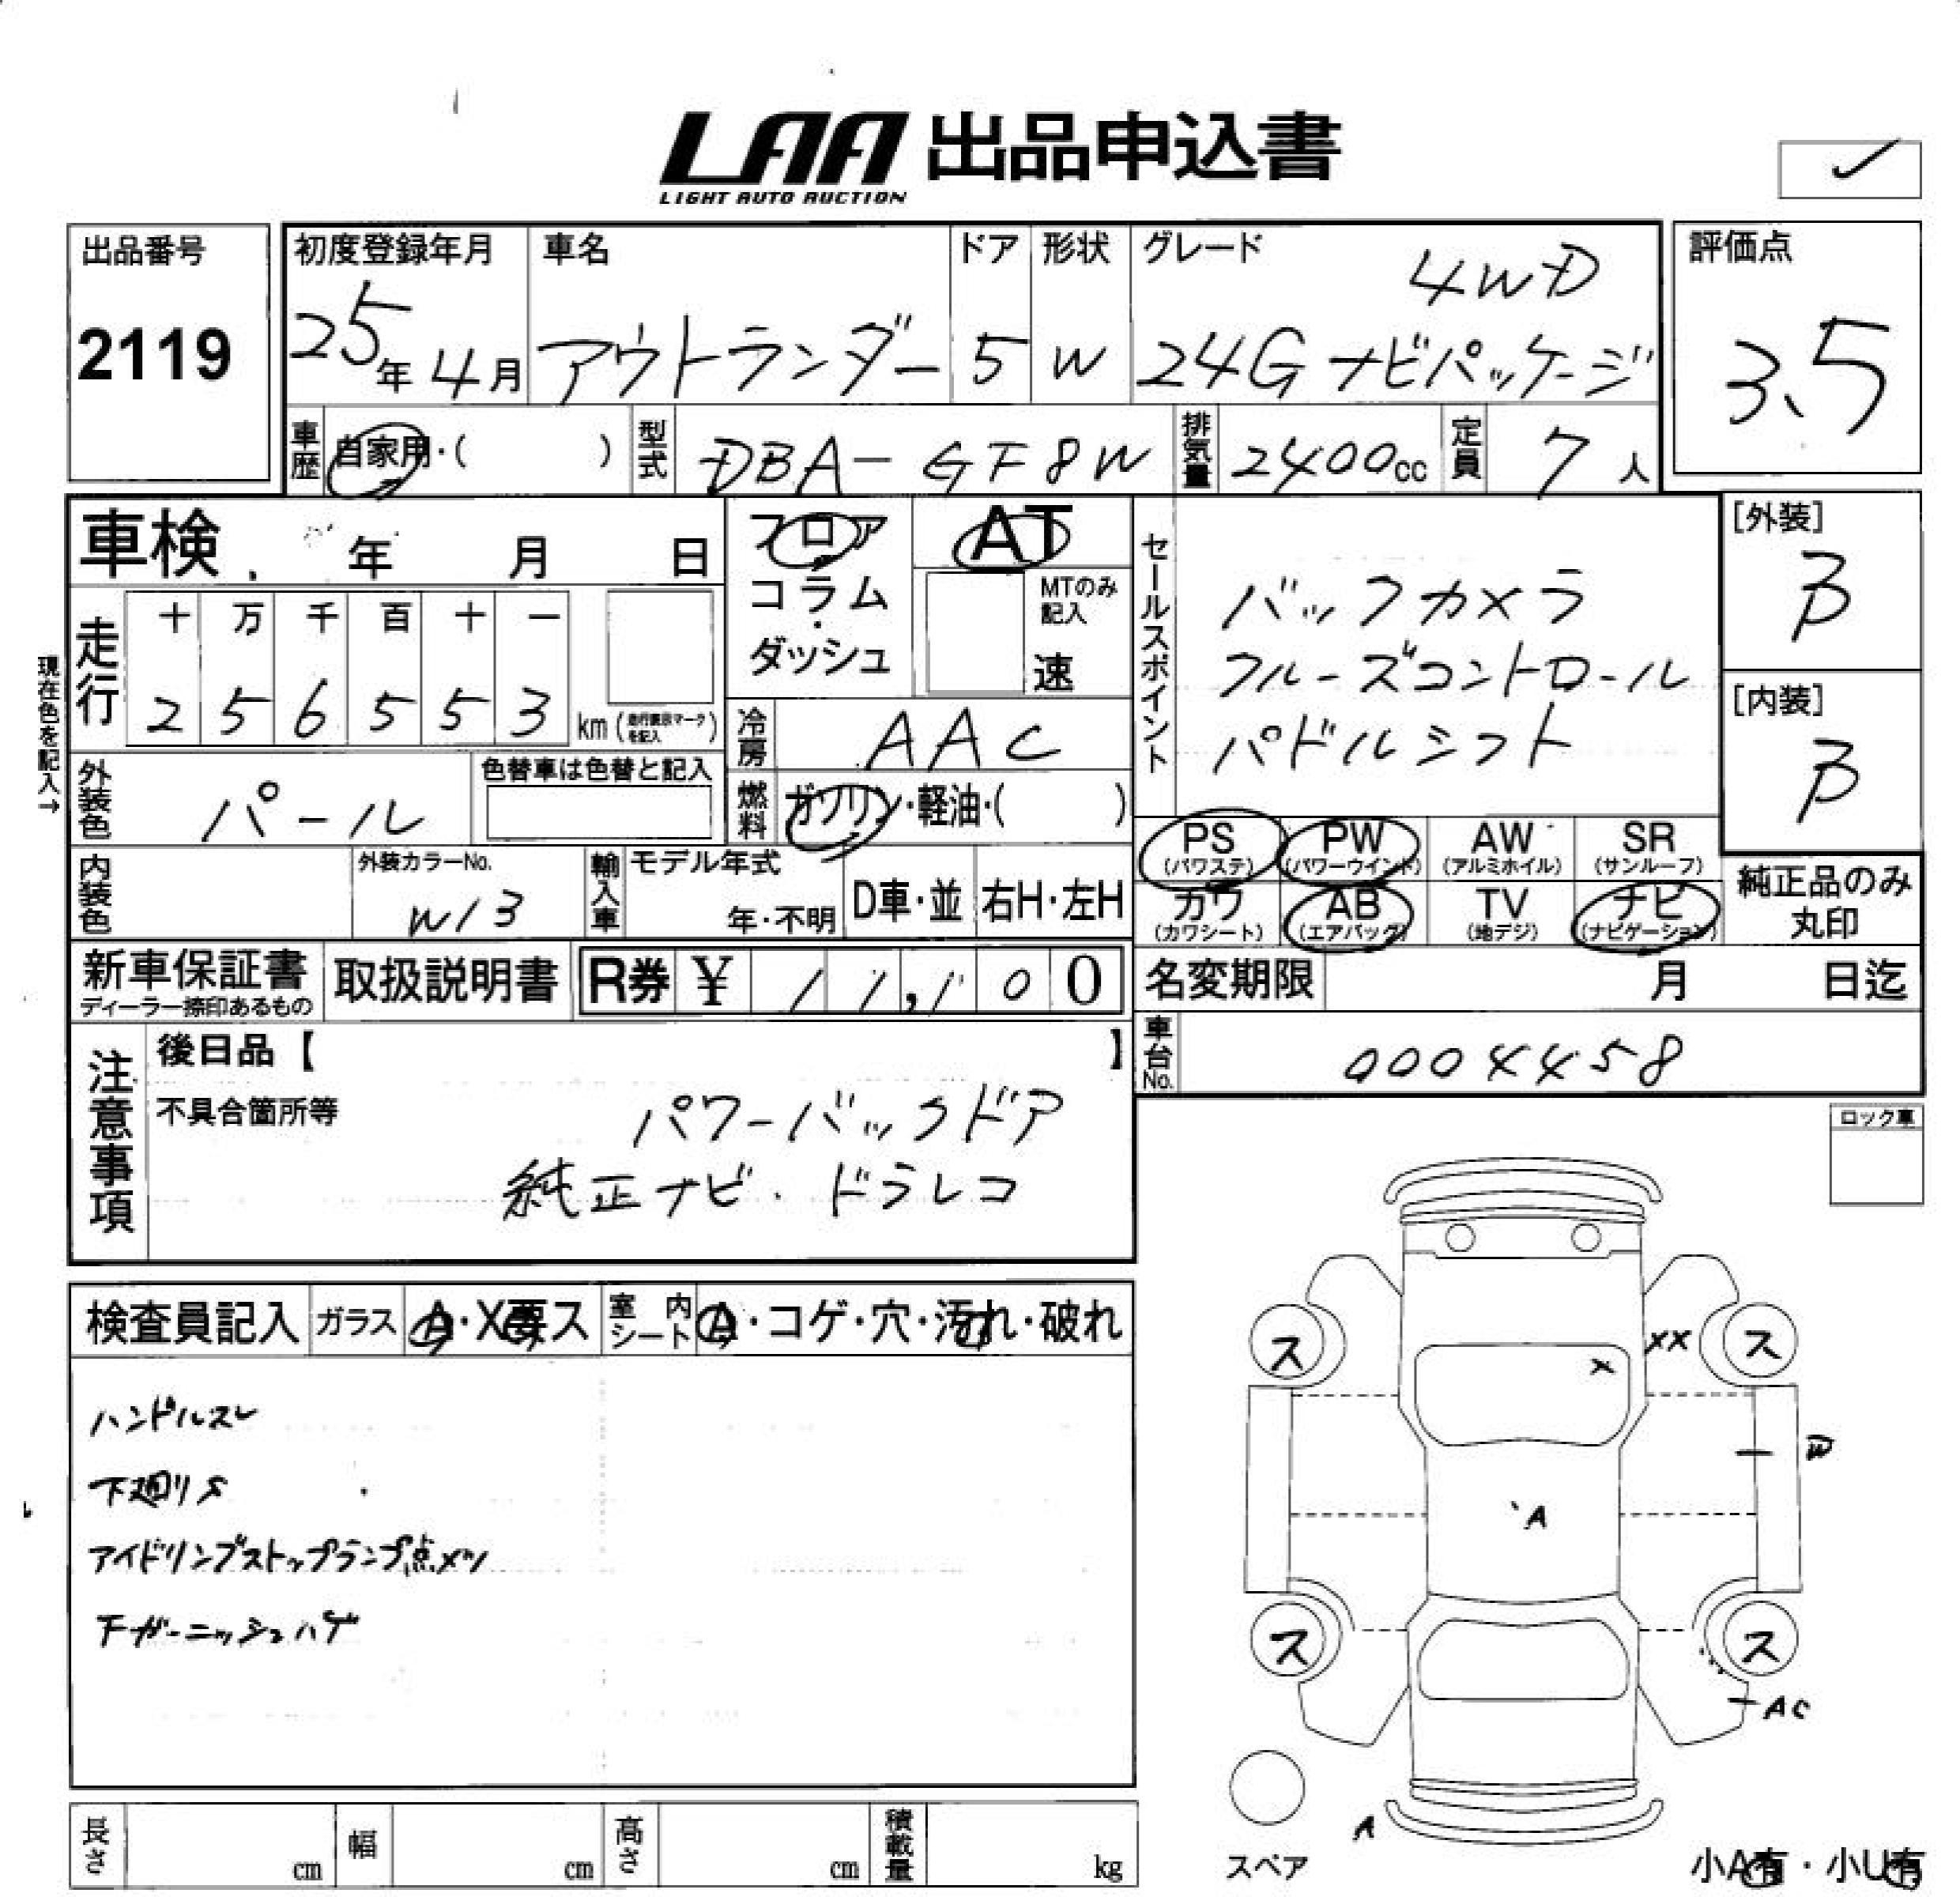 LAA 出品申込書
LIGHT AUTO AUCTION
出品番号
2119
初度登録年月
25年4月
車名
アウトランダー
ドア
5
形状
W
グレード
4WD
24Gナビパッケージ
評価点
3.5
車歴 自家用・( )
型式 DBA-GF8W
排気量 2400cc
定員 7人
車検 年 月 日
現在色を記入→
走行
十 万 千 百 十 一
2 5 6 5 5 3 km (走行表示マークを記入)
フロア
コラム
・
ダッシュ
AT
MTのみ
記入
速
冷房 AAC
燃料 ガソリン・軽油・( )
セールスポイント
バックカメラ
クルーズコントロール
パドルシフト
[外装]
B
[内装]
B
外装色 パール
色替車は色替と記入
内装色
外装カラーNo.
W13
輸入車 モデル年式
年・不明
D車・並
右H・左H
PS
(パワステ)
PW
(パワーウインド)
AW
(アルミホイル)
SR
(サンルーフ)
カワ
(カワシート)
AB
(エアバック)
TV
(地デジ)
ナビ
(ナビゲーション)
純正品のみ
丸印
新車保証書
ディーラー捺印あるもの
取扱説明書
R券 ¥ 11,100
名変期限 月 日迄
車台No. 0004458
注意事項
後日品【 】
不具合箇所等
パワーバックドア
純正ナビ・ドラレコ
ロック車
検査員記入
ガラス A・X要ス
室内シート A・コゲ・穴・汚れ・破れ
ハンドルスレ
下廻りS
アイドリングストップランプ点メツ
下ガーニッシュハゲ
ス
XX
ス
X
W
A
ス
ス
AC
A
スペア
小A有・小U有
長さ cm
幅 cm
高さ cm
積載量 kg